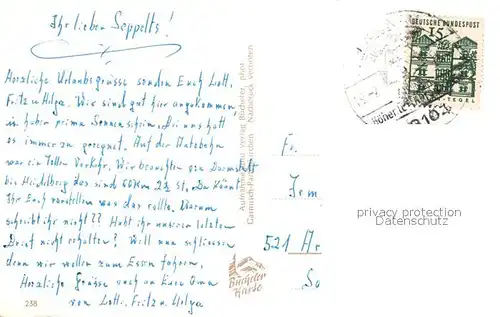 Ihr lieben Seppelts!
Herzliche Urlaubsgrüsse senden Euch Lott.
Fritz u Helga. Wir sind gut hier angekommen,
u haben prima Sonnenschein. Bei uns hat
es immer zu geregnet. Auf der Autobahn
war ein toller Verkehr. Wir brauchten von Darmstadt
bis Heidelberg das sind 60 Km 2½ St. Da könnt
Ihr Euch vorstellen was das sollte. Warum
schreibt ihr nicht?? Habt ihr unseren letzten
Brief nicht erhalten? Will nun schliessen
denn wir wollen zum Essen fahren.
Herzliche Grüsse auch an Eure Oma
von Lott. Fritz u Helga
238
Aufnahme und Verlag Büchele, phot.
Garmisch-Partenkirchen Nachdruck verboten
Büchele
Karte
DEUTSCHE BUNDESPOST
15
TEGEL
8104
Fr.
Fem
521
So
privacy protection
Datenschutz